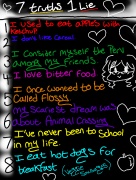 7 truths 1 Lie
1 I used to eat apples with
Ketchup!
2 I don't like Cereal
3 I Consider myself the Pero
among my friends
4 I love bitter food
5 I once wanted to be
Called Flossy
6 my Scariest dream was
about Animal Crossing
7 I've never been to School
in my life.
8 I eat hot dogs for
breakfast